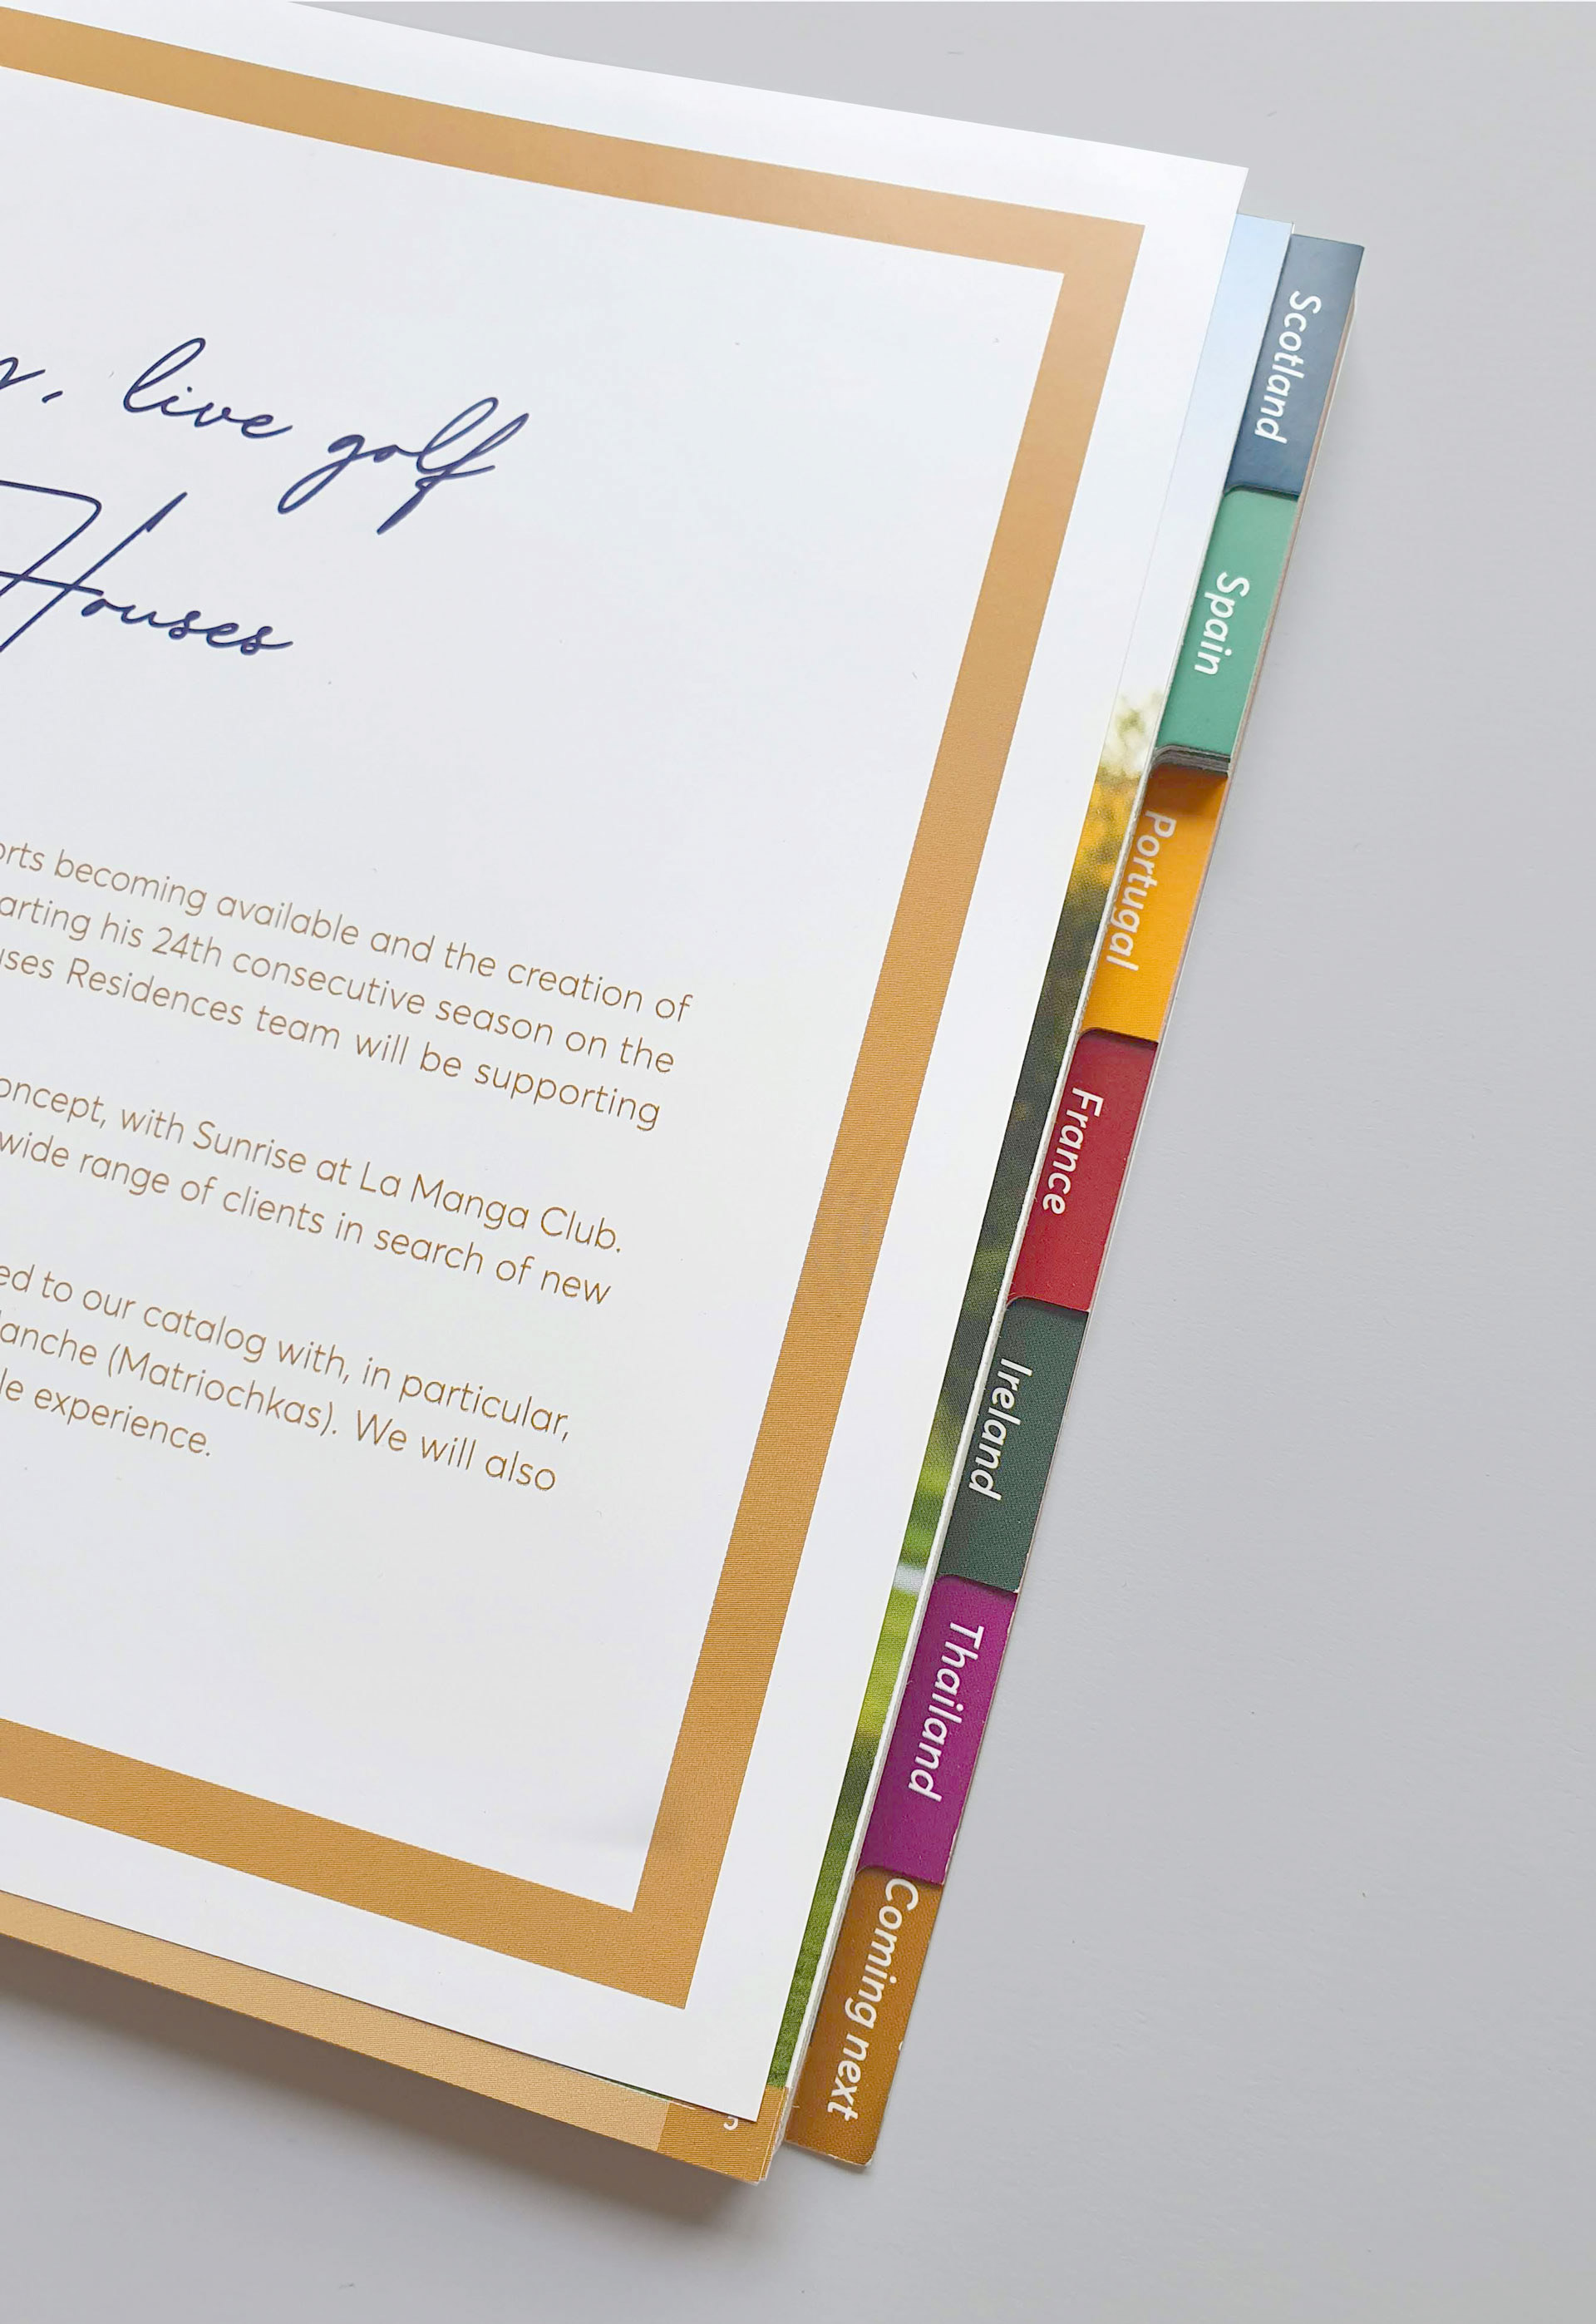 live golf
Houses
becoming available and the creation of
his 24th consecutive season on the
Residences team will be supporting
with Sunrise at La Manga Club.
wide range of clients in search of new
to our catalog with, in particular,
(Matriochkas). We will also
experience.
Scotland
Spain
Portugal
France
Ireland
Thailand
Coming next